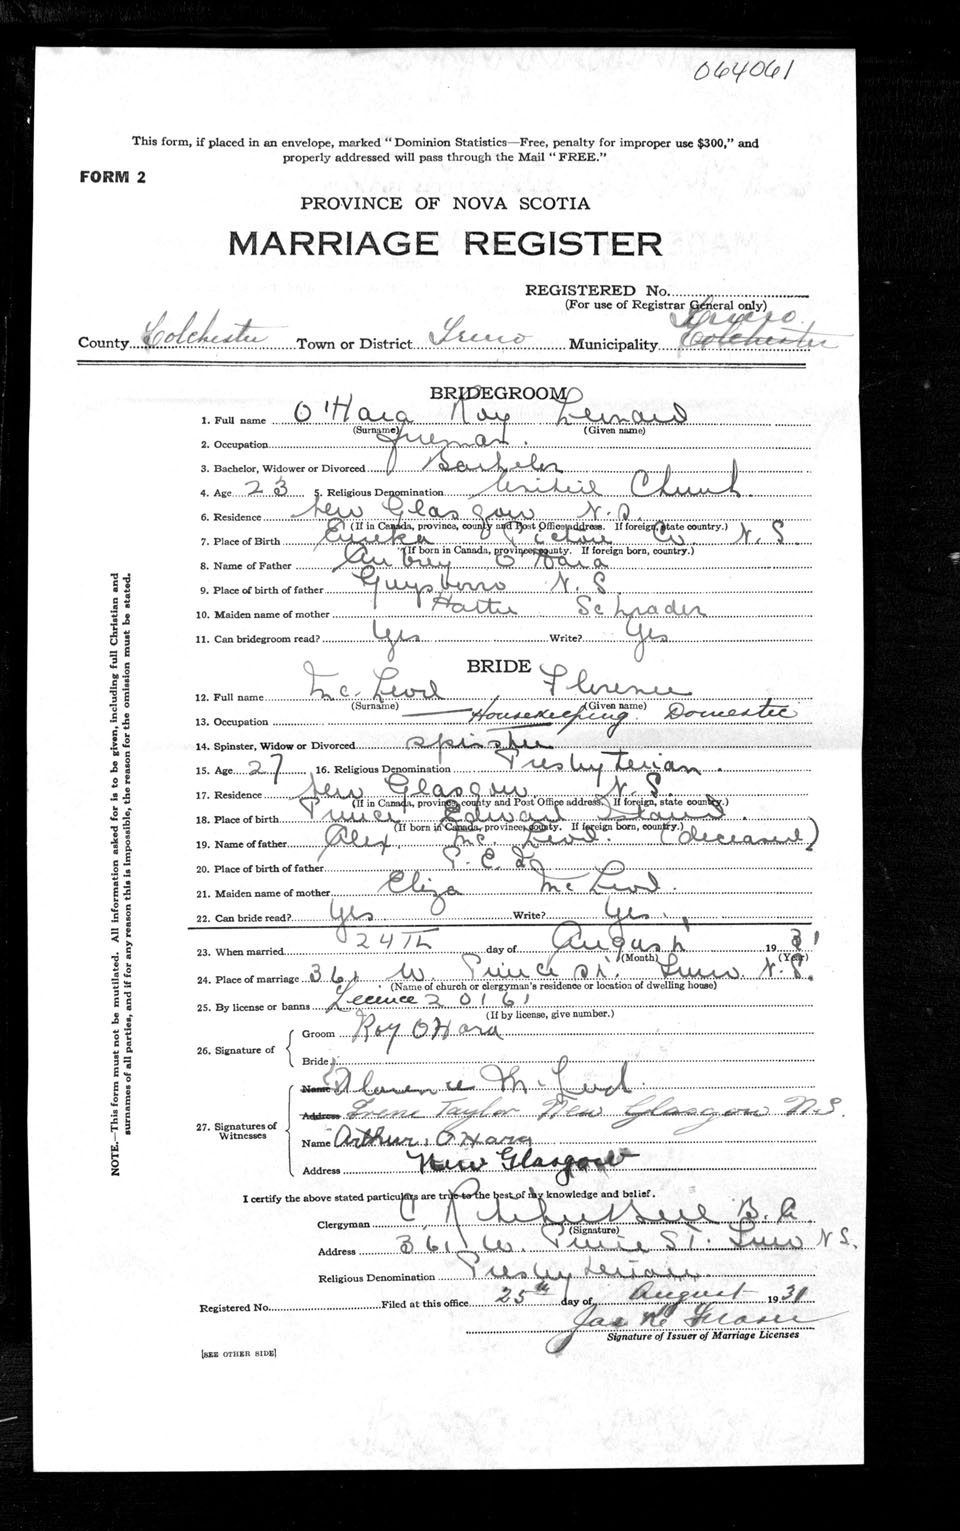 064061
This form, if placed in an envelope, marked "Dominion Statistics—Free, penalty for improper use $300," and
properly addressed will pass through the Mail "FREE."
FORM 2
PROVINCE OF NOVA SCOTIA
MARRIAGE REGISTER
REGISTERED No.
(For use of Registrar General only)
Truro
County Colchester Town or District Truro Municipality Colchester
BRIDEGROOM
1. Full name O'Hara Roy Lenard
(Surname) (Given name)
2. Occupation Fireman.
3. Bachelor, Widower or Divorced Bachelor
4. Age 23 5. Religious Denomination United Church
6. Residence New Glasgow N.S.
(If in Canada, province, county and Post Office address. If foreign, state country.)
7. Place of Birth Eureka Pictou Co. N.S.
(If born in Canada, province, county. If foreign born, country.)
8. Name of Father Aubrey O'Hara
9. Place of birth of father Guysboro N.S
10. Maiden name of mother Hattie Schrader
11. Can bridegroom read? Yes Write? Yes
BRIDE
12. Full name McLeod Florence
(Surname) (Given name)
13. Occupation Housekeeping Domestic
14. Spinster, Widow or Divorced Spinster
15. Age 27 16. Religious Denomination Presbyterian.
17. Residence New Glasgow N.S.
(If in Canada, province, county and Post Office address. If foreign, state country.)
18. Place of birth Prince Edward Island.
(If born in Canada, province, county. If foreign born, country.)
19. Name of father Alex. McLeod. (deceased)
20. Place of birth of father P.E.I.
21. Maiden name of mother Eliza McLeod.
22. Can bride read? Yes Write? Yes.
23. When married 24Th day of August 1931
(Month) (Year)
24. Place of marriage 361 W. Prince St. Truro N.S.
(Name of church or clergyman's residence or location of dwelling house)
25. By license or banns Licence 20161
(If by license, give number.)
26. Signature of
Groom Roy O'Hara
Bride
27. Signatures of Witnesses
Name Florence McLeod
Address Irene Taylor New Glasgow N.S.
Name Arthur O'Hara
Address New Glasgow
I certify the above stated particulars are true to the best of my knowledge and belief.
Clergyman C B.A
(Signature)
Address 361 W. Prince ST. Truro N.S.
Religious Denomination Presbyterian
Registered No. Filed at this office 25th day of August 1931
Jas Fraser
Signature of Issuer of Marriage Licenses
[SEE OTHER SIDE]
NOTE.—This form must not be mutilated. All information asked for is to be given, including full Christian and
surnames of all parties, and if for any reason this is impossible, the reason for the omission must be stated.